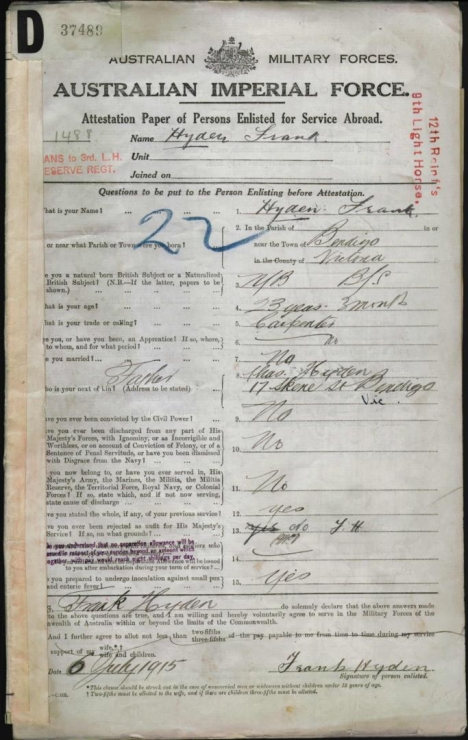 D 37489
AUSTRALIAN MILITARY FORCES.
AUSTRALIAN IMPERIAL FORCE.
Attestation Paper of Persons Enlisted for Service Abroad.
12th Reinf's
9th Light Horse.
1488 Name Hyden Frank
ANS to 3rd. L.H.
ESERVE REGT.
Unit
Joined on
Questions to be put to the Person Enlisting before Attestation.
hat is your Name? ... 1. Hyden Frank
22
2. In the Parish of in or
or near what Parish or Town were you born? near the Town of Bendigo
in the County of Victoria
e you a natural born British Subject or a Naturalized
British Subject? (N.B.—If the latter, papers to be
shown.) 3. NB BS
hat is your age? 4. 23 years 3 months
hat is your trade or calling? 5. Carpenter
re you, or have you been, an Apprentice? If so, where,
to whom, and for what period? 6. No
re you married? 7. No
Father
ho is your next of kin? (Address to be stated) 8. Chas. Hyden
17 Skene St Bendigo
Vic.
ave you ever been convicted by the Civil Power? 9. No
ave you ever been discharged from any part of His
Majesty's Forces, with Ignominy, or as Incorrigible and
Worthless, or on account of Conviction of Felony, or of a
Sentence of Penal Servitude, or have you been dismissed
with Disgrace from the Navy? 10. No
o you now belong to, or have you ever served in, His
Majesty's Army, the Marines, the Militia, the Militia
Reserve, the Territorial Force, Royal Navy, or Colonial
Forces? If so, state which, and if not now serving,
state cause of discharge 11. No
ave you stated the whole, if any, of your previous service? 12. yes
ave you ever been rejected as unfit for His Majesty's
Service? If so, on what grounds? 13. yes no F.H
14.
to you after embarkation during your term of service?
re you prepared to undergo inoculation against small pox
and enteric fever? 15. Yes
Frank Hyden do solemnly declare that the above answers made
to the above questions are true, and I am willing and hereby voluntarily agree to serve in the Military Forces of the
wealth of Australia within or beyond the limits of the Commonwealth.
And I further agree to allot not less than two-fifths
three-fifths of the pay payable to me from time to time during my service
support of my wife.*†
wife and children.
Date 6 July 1915 Frank Hyden
Signature of person enlisted.
*This clause should be struck out in the case of unmarried men or widowers without children under 18 years of age.
†Two-fifths must be allotted to the wife, and if there are children three-fifths must be allotted.